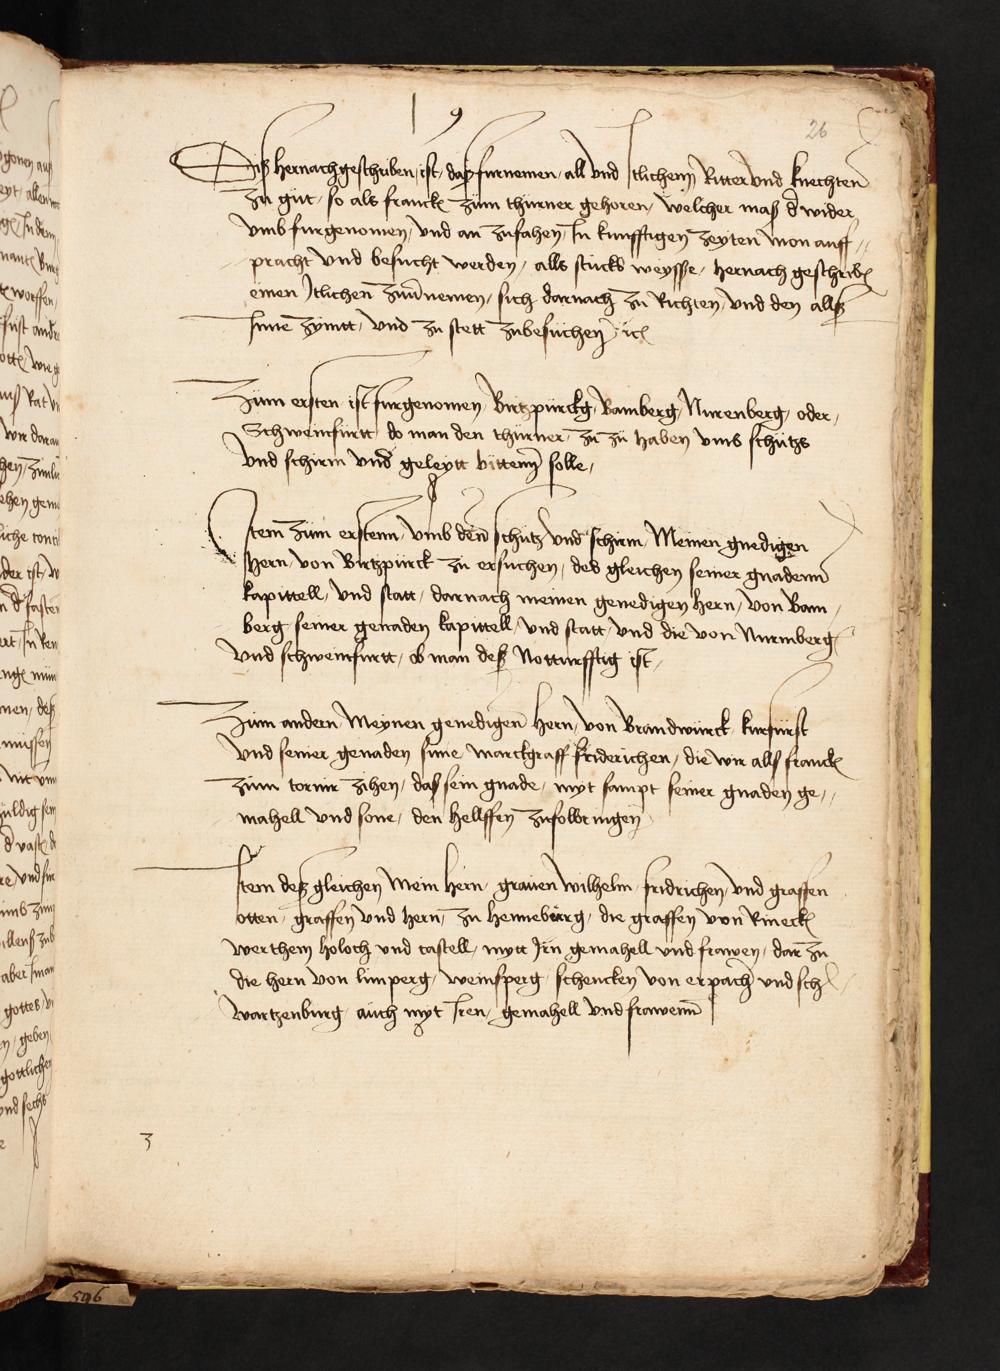 19
26
Diß hernachgeschriben, ist, daß furnemen, all und Itlichenn Ritter und knechten
zu gut, so als franck zum thurner gehoren, welcher maß d wider
umb furgenomen, und an zufahen, In kunfftigen zeyten mon auff
pracht und besucht werden, alls stucks weysse, hernach geschrib
einen Itlichen zuu nemen, sich darnach zu Richten, und den allß
Inne zymtt, und zu stett zubesuchenn
Zum ersten ist furgenomen, Birtzpurckg, Bamberg, Nurenberg, oder,
Schweinfurtt, do man den thurner, zu zu haben umb schutzs
und schirm und geleytt bittenn solle,
Item zum erstenn, umb den schutz und schirm, Meinen gnedigen
hern, von Birtzpurck zu ersuchen, des gleichen seiner gnadenn
kapittell, und statt, darnach meinen genedigen hern, von Bam,
berg, seiner genaden kapittell, und statt, und die von Nurmberg
und schweinfurtt, ob man deß Notturfftig ist,
Zum andern Meynen genedigen hern, von Brandwurck, kurfurst
und seiner genaden sune, marckgraff friderichen, die wir alls franck
zum tornir zihen, daß sein gnade, myt sampt seiner gnaden ge,,
mahell und sone, den hellffen zufolbringen
Item deß gleichen Mein hern, graven wilhelm, fridrichen, und graffen
otten, graffen und hern, zu hennebarg, die graffen von Rineck
werthem holoch und castell, mytt Irn gemahell und frawen, dar zu
die hern von limperg, weinsperg, schencken von erpach und sch
wartzenburg, auch myt Iren, gemahell und frawenn
3
596